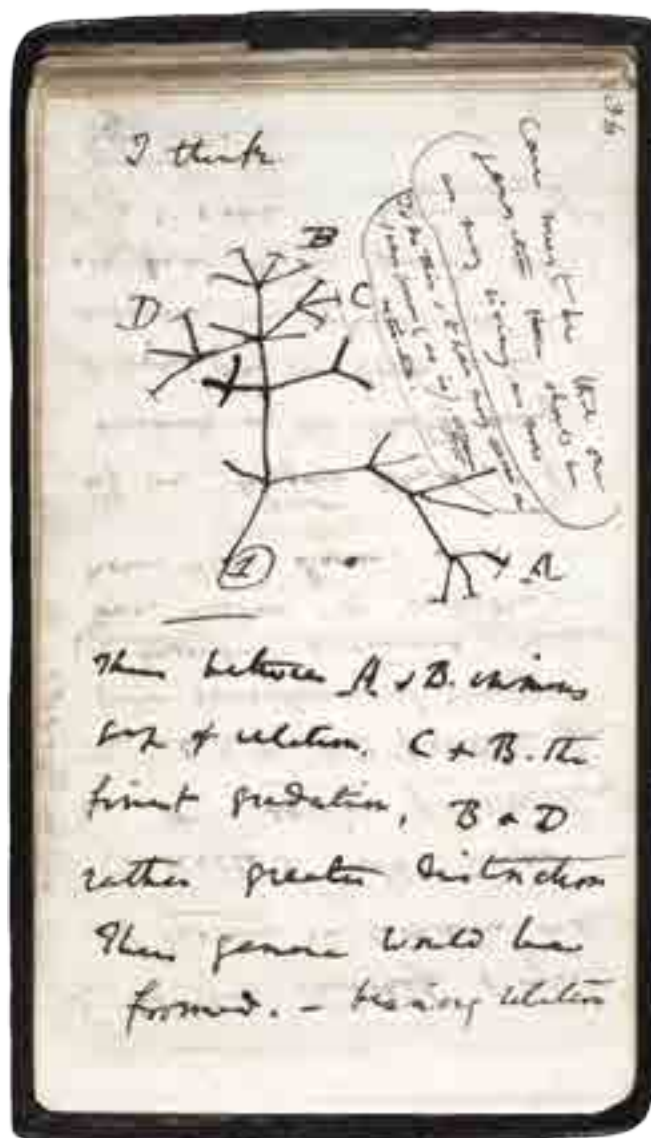 36
I think
Case must be that one
generation then should be
as many living as now
To do this & to have many species in
same genus (as is) requires
extinction
B
C
D
A
1
Thus between A & B. immense
gap of relation. C & B. the
finest gradation, B & D
rather greater distinction
Thus genera would be
formed. — bearing relation